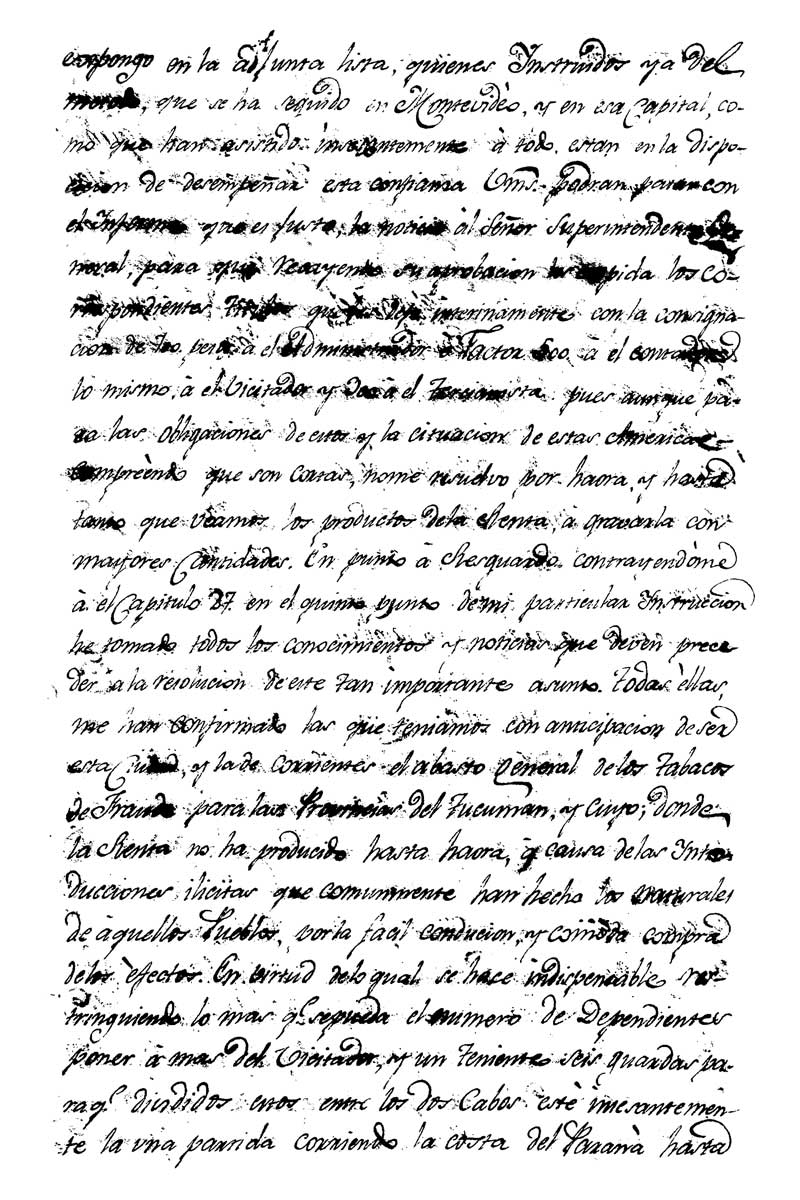 expongo en la adjunta lista, quienes Instruidos ya del
metodo, que se ha seguido en Montevidèo, y en esa Capital, co-
mo que han asistido insesantemente à todo, estan en la dispo-
cicion de desempeñar esta confianza Vms. podran pasar con
el Informe que es justo, la noticia àl Señor Superintendente Ge-
neral, para que recayendo su aprobacion les expida los co-
rrespondientes Titulos que les dejè interinamente con la consigna-
cion de 700 pesos à el Administrador ò Factor 500 à el contador
lo mismo, à el Vicitador y 300 à el Tercenista pues aunque pa-
ra las obligaciones de estos y la cituacion de estas Américas
comprèendo que son cortas, no me resuelvo por haora, y hasta
tanto que veamos los productos dela Renta, à gravarla con
mayores Cantidades. En punto à Resguardo contrayendòme
à el Capitulo 27 en el quinto punto de mi particular Instruccion
he tomado todos los conocimientos y noticias que deven prece
der à la resolucion de este tan importante asunto. todas èllas,
me han confirmado las que teniamos con anticipacion de ser
esta Ciudad, y la de Corrientes el abasto general de los Tabacos
de Fraude para las Provincias del Tucumàn, y Cuyo, donde
la Renta no ha producido hasta haora, à causa de las Intro
ducciones ilicitas que comunmente han hecho los naturales
de àquellos Pueblos, por la facil conducion, y còmoda compra
delos èfectos. En virtud delo qual se hace indispensable res-
tringuiendo lo mas q.e se pueda el numero de Dependientes
poner à mas del Vicitador, y un Teniente seis guardas pa-
ra q.e divididos estos entre los dos Cabos estè incesantemen-
te la una partida corriendo la costa del Paranà hasta